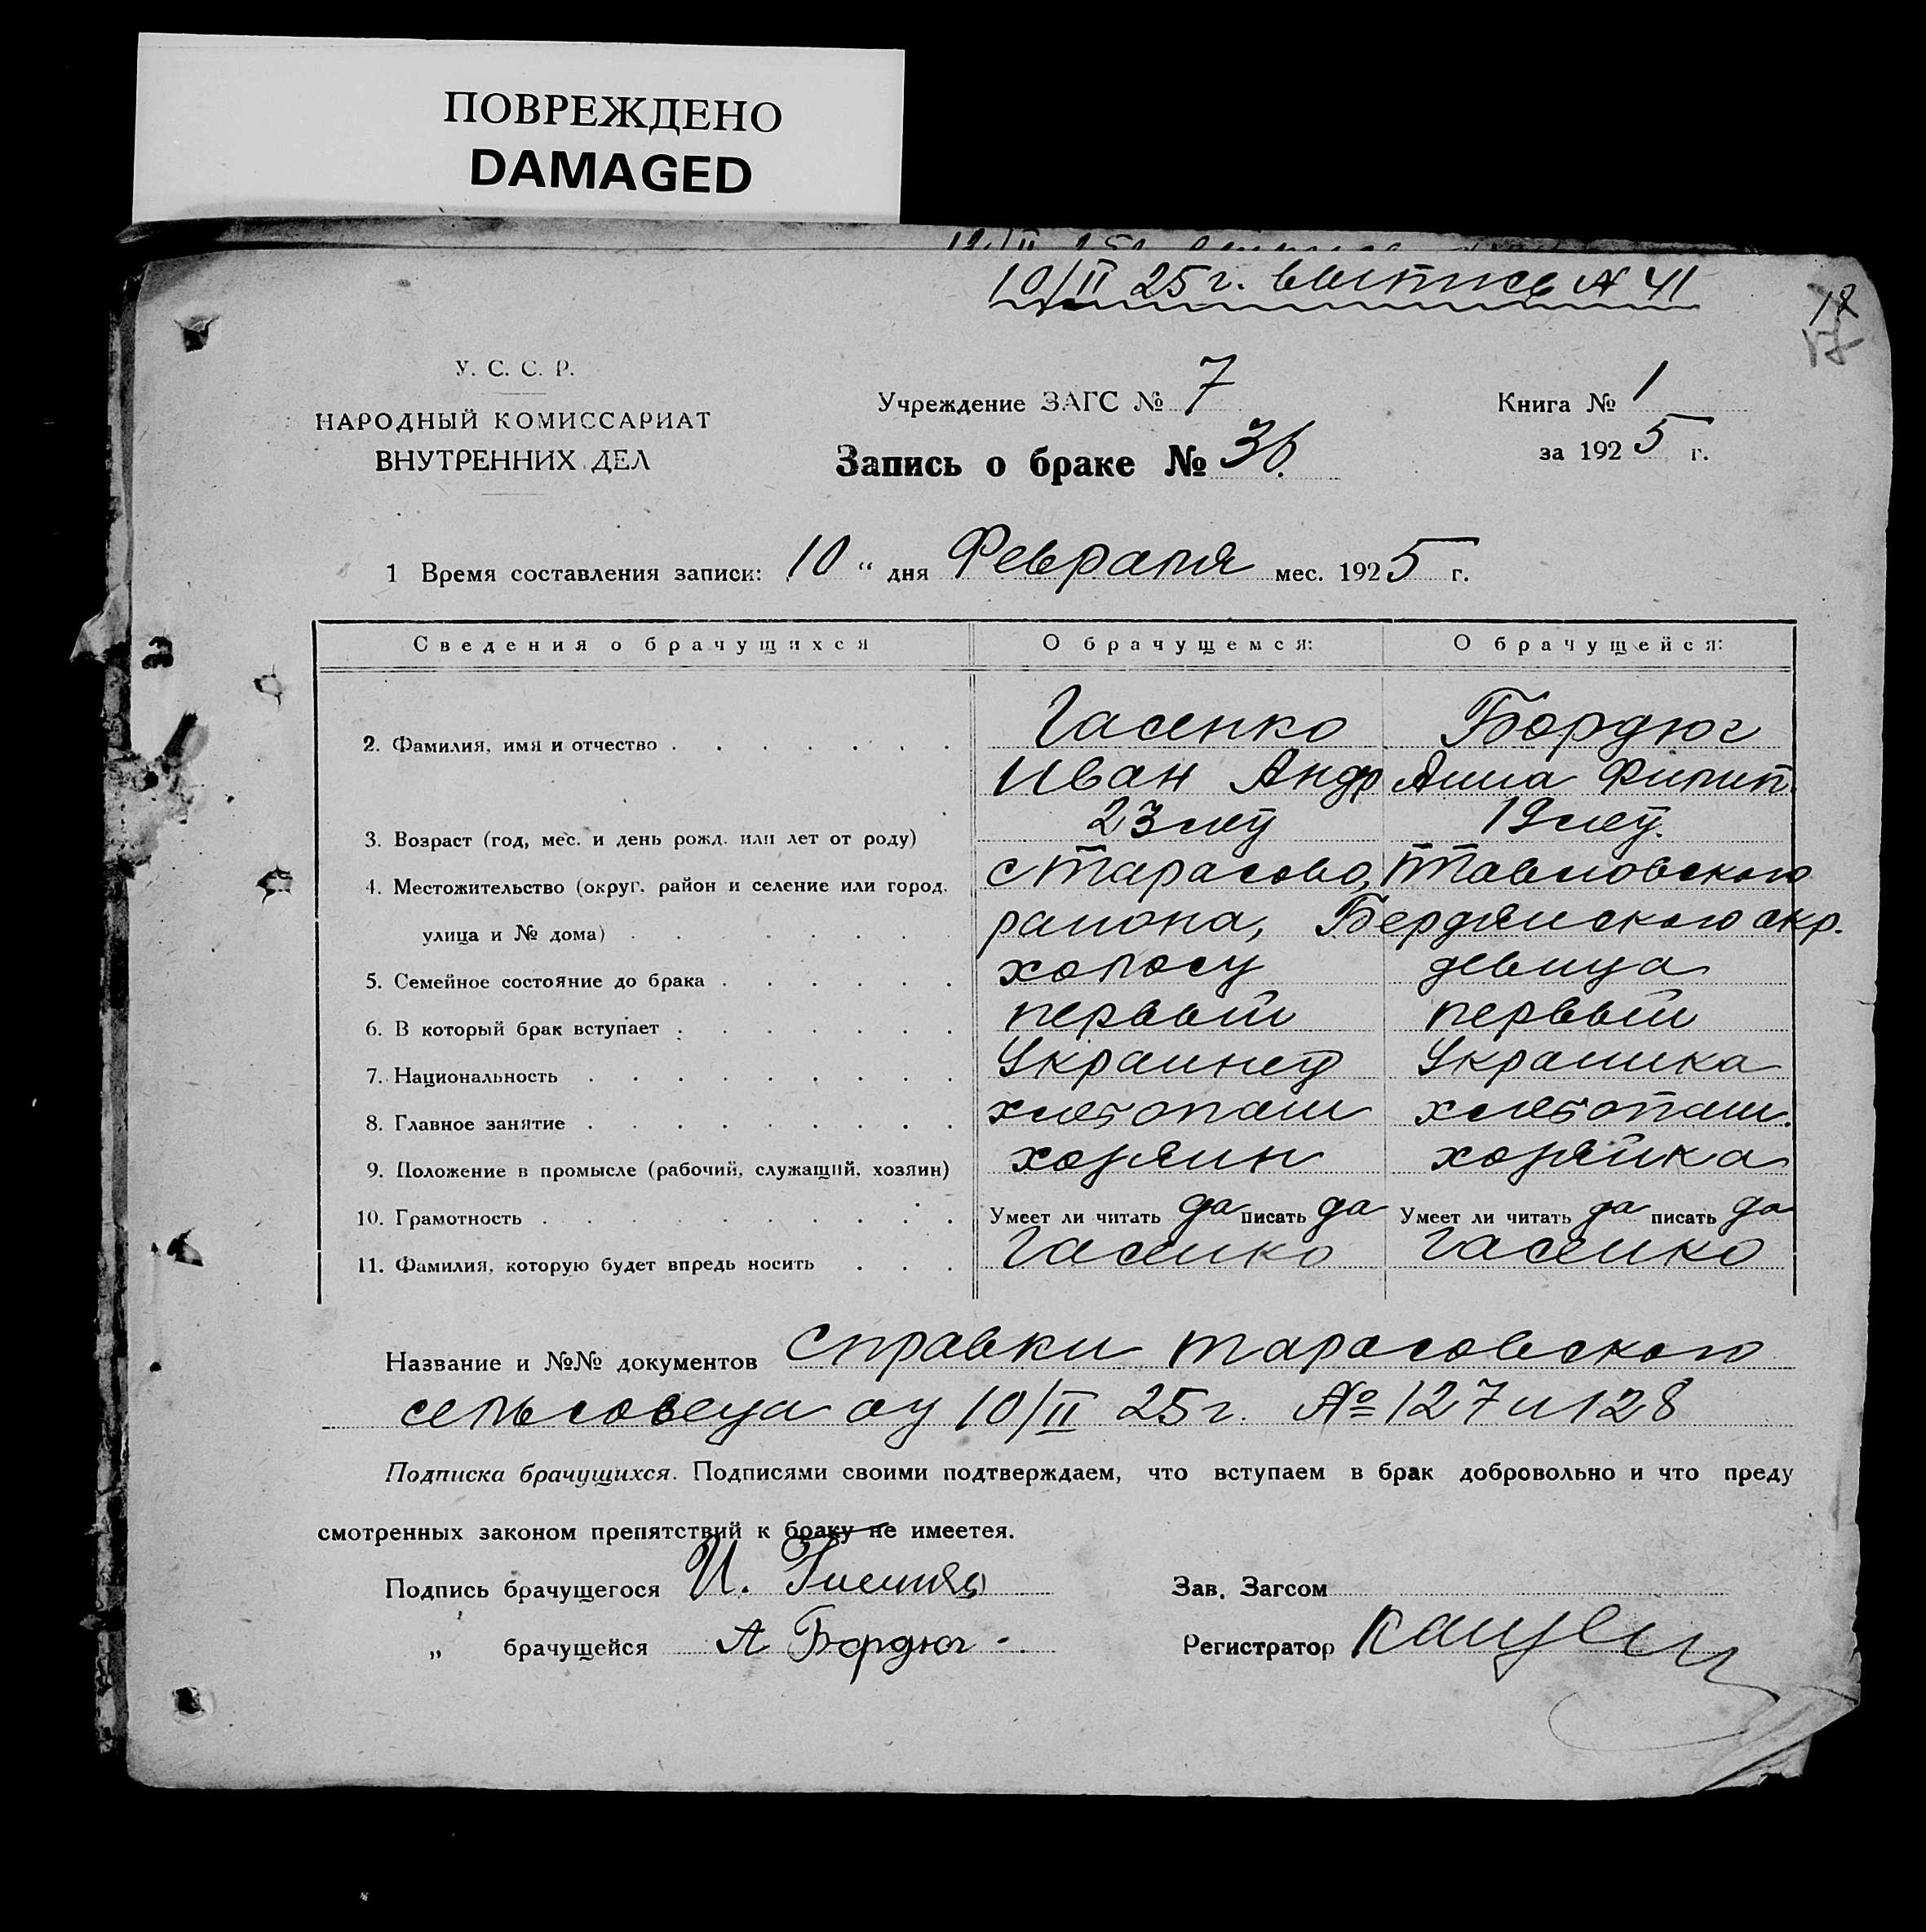 ПОВРЕЖДЕНО
DAMAGED
10/II 25 г. выпись № 41
18
У. С. С. Р.
НАРОДНЫЙ КОМИССАРИАТ
ВНУТРЕННИХ ДЕЛ
Учреждение ЗАГС № 7
Запись о браке № 36.
Книга № 1
за 1925 г.
1 Время составления записи: 10 “ дня Февраля мес. 1925 г.
Сведения о брачущихся О брачущемся: О брачущейся:
2. Фамилия, имя и отчество Гасенко Бордюг
Иван Андр Анна Филип.
3. Возраст (год, мес. и день рожд. или лет от роду) 23 лет 19 лет.
4. Местожительство (округ. район и селение или город, с Тарасово,
улица и № дома) района, Бердянского окр.
5. Семейное состояние до брака холост девица
6. В который брак вступает первый первый
7. Национальность Украинец Украинка
8. Главное занятие хлебопаш хлебопаш.
9. Положение в промысле (рабочий, служащий, хозяин) хозяин хозяйка
10. Грамотность Умеет ли читать да писать да Умеет ли читать да писать да
11. Фамилия, которую будет впредь носить Гасенко Гасенко
Название и №№ документов справки тарасовского
сельсовета от 10/II 25 г. № 127 и 128
Подписка брачущихся. Подписями своими подтверждаем, что вступаем в брак добровольно и что преду
смотренных законом препятствий к браку не имеетея.
Подпись брачущегося И.
Зав. Загсом
„ брачущейся А Бордюг
Регистратор